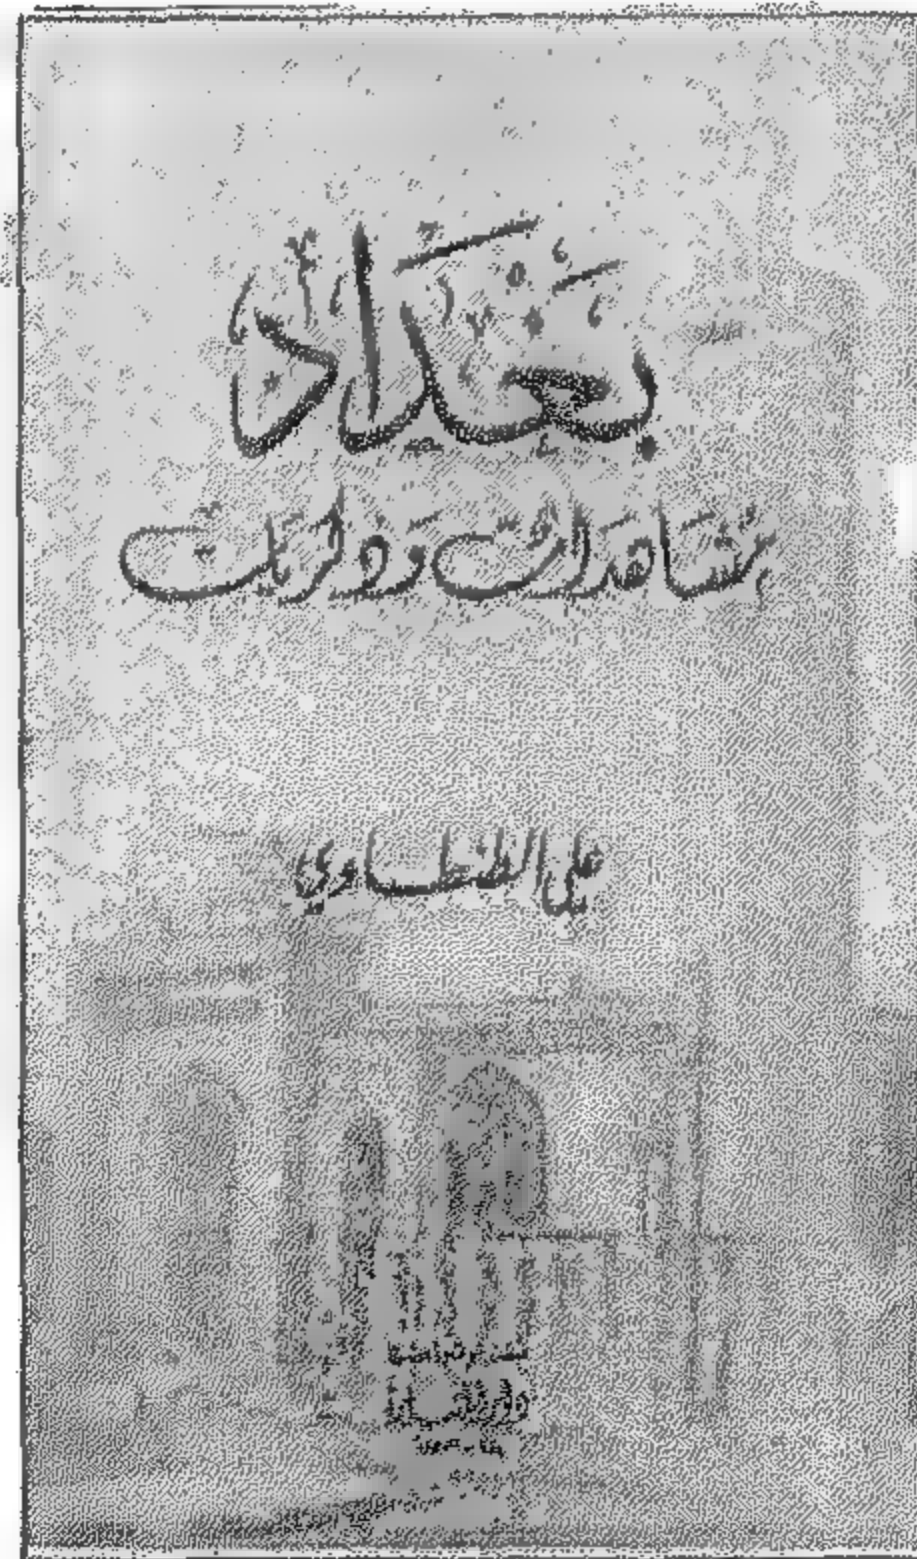 بَغْدَادُ
مُشَاهَدَاتٌ وَذِكْرَيَاتٌ
علي الطنطاوي